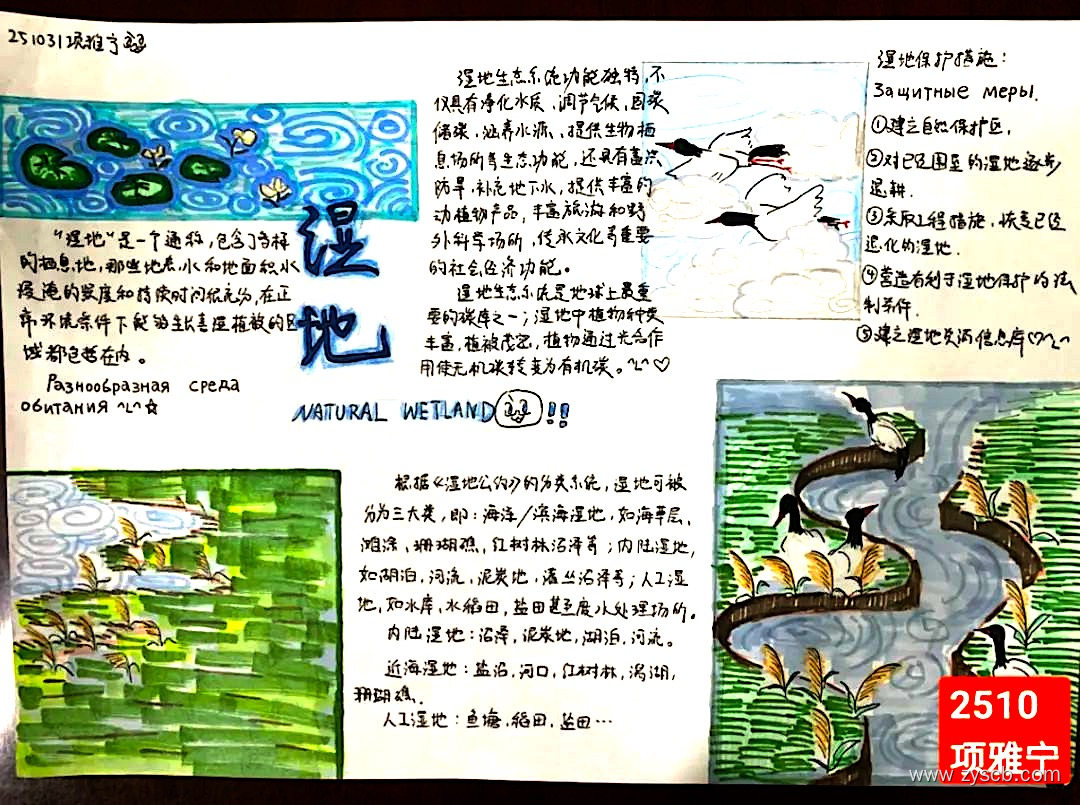 251031项雅宁
湿地
"湿地"是一个通称,包含了多样
的栖息地,那些地表水和地面积水
浸淹的频度和持续时间很充分,在正
常环境条件下能够生长喜湿植被的区
域都包括在内。
Разнообразная среда
обитания
NATURAL WETLAND!!
湿地生态系统功能独特,不
仅具有净化水质、调节气候、固碳
储碳、涵养水源、提供生物栖
息场所等生态功能,还具有蓄洪
防旱、补充地下水,提供丰富的
动植物产品,丰富旅游和野
外科学场所,传承文化等重要
的社会经济功能。
湿地生态系统是地球上最重
要的碳库之一;湿地中植物种类
丰富,植被茂密,植物通过光合作
用使无机碳转变为有机碳。
湿地保护措施:
Защитные меры.
①建立自然保护区,
②对已经围垦的湿地逐步
退耕.
③采取工程措施,恢复已经
退化的湿地.
④营造有利于湿地保护的法
制条件.
⑤建立湿地资源信息库
根据《湿地公约》的分类系统,湿地可被
分为三大类,即:海洋/滨海湿地,如海草层,
滩涂,珊瑚礁,红树林沼泽等;内陆湿地,
如湖泊,河流,泥炭地,灌丛沼泽等;人工湿
地,如水库,水稻田,盐田甚至废水处理场所。
内陆湿地:沼泽,泥炭地,湖泊,河流。
近海湿地:盐沼,河口,红树林,潟湖,
珊瑚礁.
人工湿地:鱼塘,稻田,盐田…
2510
项雅宁
www.zyscb.com